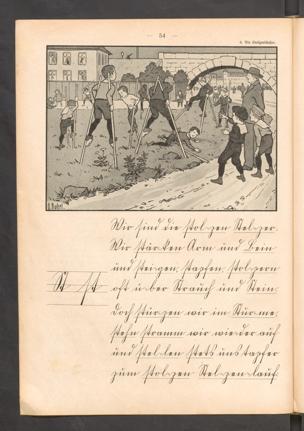 — 54 —
Wir sind die stol-zen Stel-zer.
Wir stär-ken Arm und Bein
und stei-gen, stapfen, stolzern
St st
oft ü-ber Strauch und Stein.
Doch stür-zen wir im Stur-me,
stehn stramm wir wie-der auf
und stel-len stets uns tapfer
zum stol-zen Stel-zen-lauf.